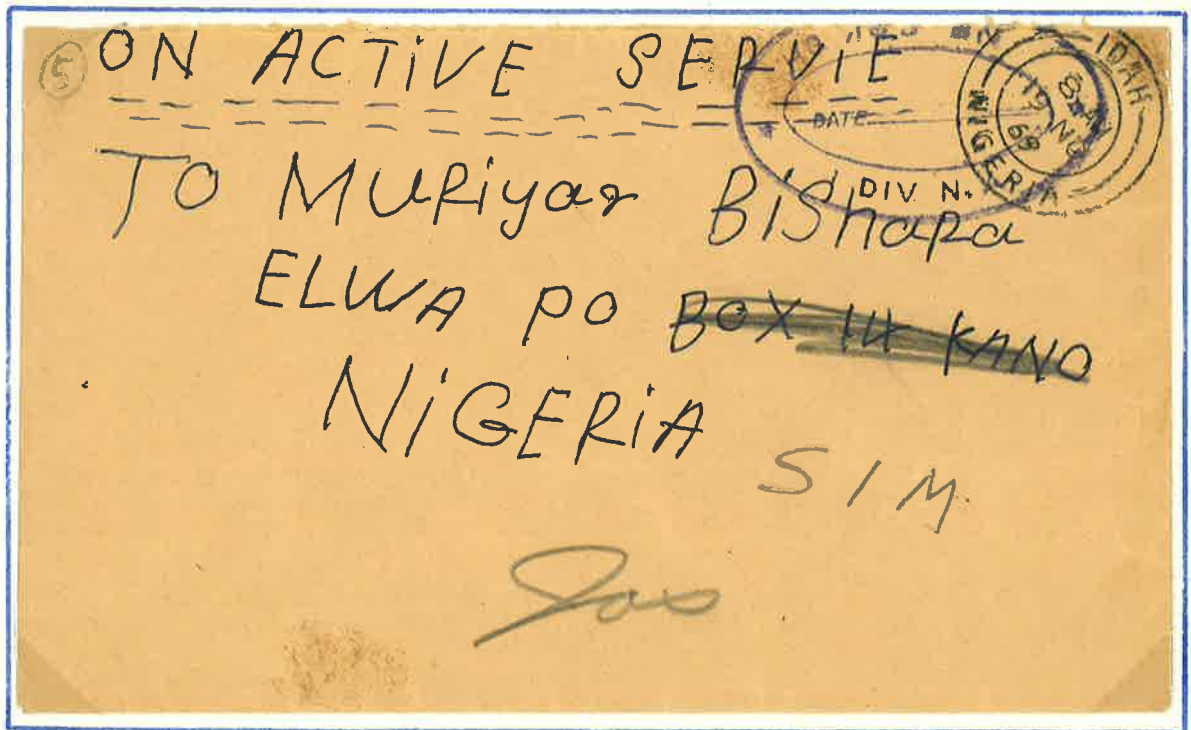 5
ON ACTiVE SERVIE
DATE
DIV N.
IDAH
8
19 NO
69
NIGERIA
TO MURiyar BiShara
ELWA PO BOX 114 KANO
NiGERiA
SIM
Jos